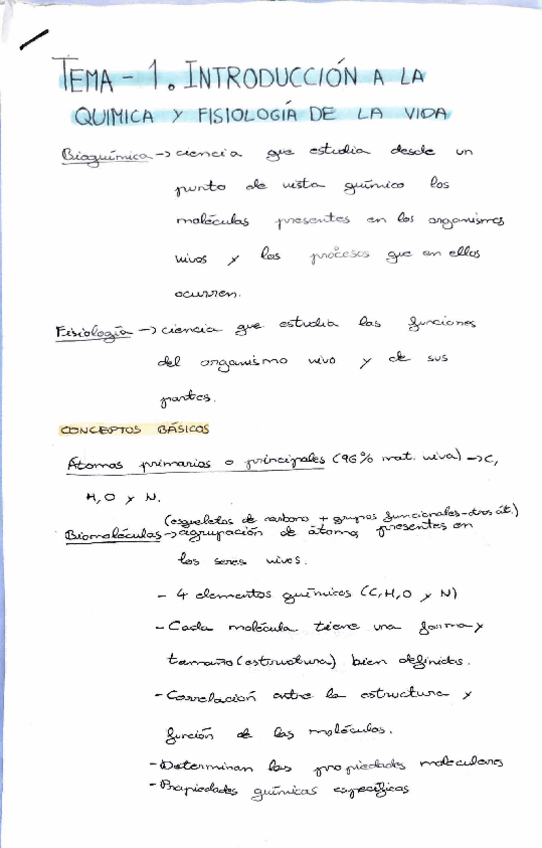 TEMA - 1. INTRODUCCIÓN A LA
QUIMICA Y FISIOLOGÍA DE LA VIDA
Bioquímica → ciencia que estudia desde un
punto de vista químico las
moléculas presentes en los organismos
vivos y los procesos que en ellos
ocurren.
Fisiología → ciencia que estudia las funciones
del organismo vivo y de sus
partes.
CONCEPTOS BÁSICOS
Átomos primarios o principales (96% mat. viva) → C,
H, O y N.
(esqueletos de carbono + grupos funcionales - otros át.)
Biomoléculas → agrupación de átomos presentes en
los seres vivos.
- 4 elementos químicos (C, H, O y N)
- Cada molécula tiene una forma y
tamaño (estructura) bien definidas.
- Correlación entre la estructura y
función de las moléculas.
- Determinan las propiedades moleculares
- Propiedades químicas específicas